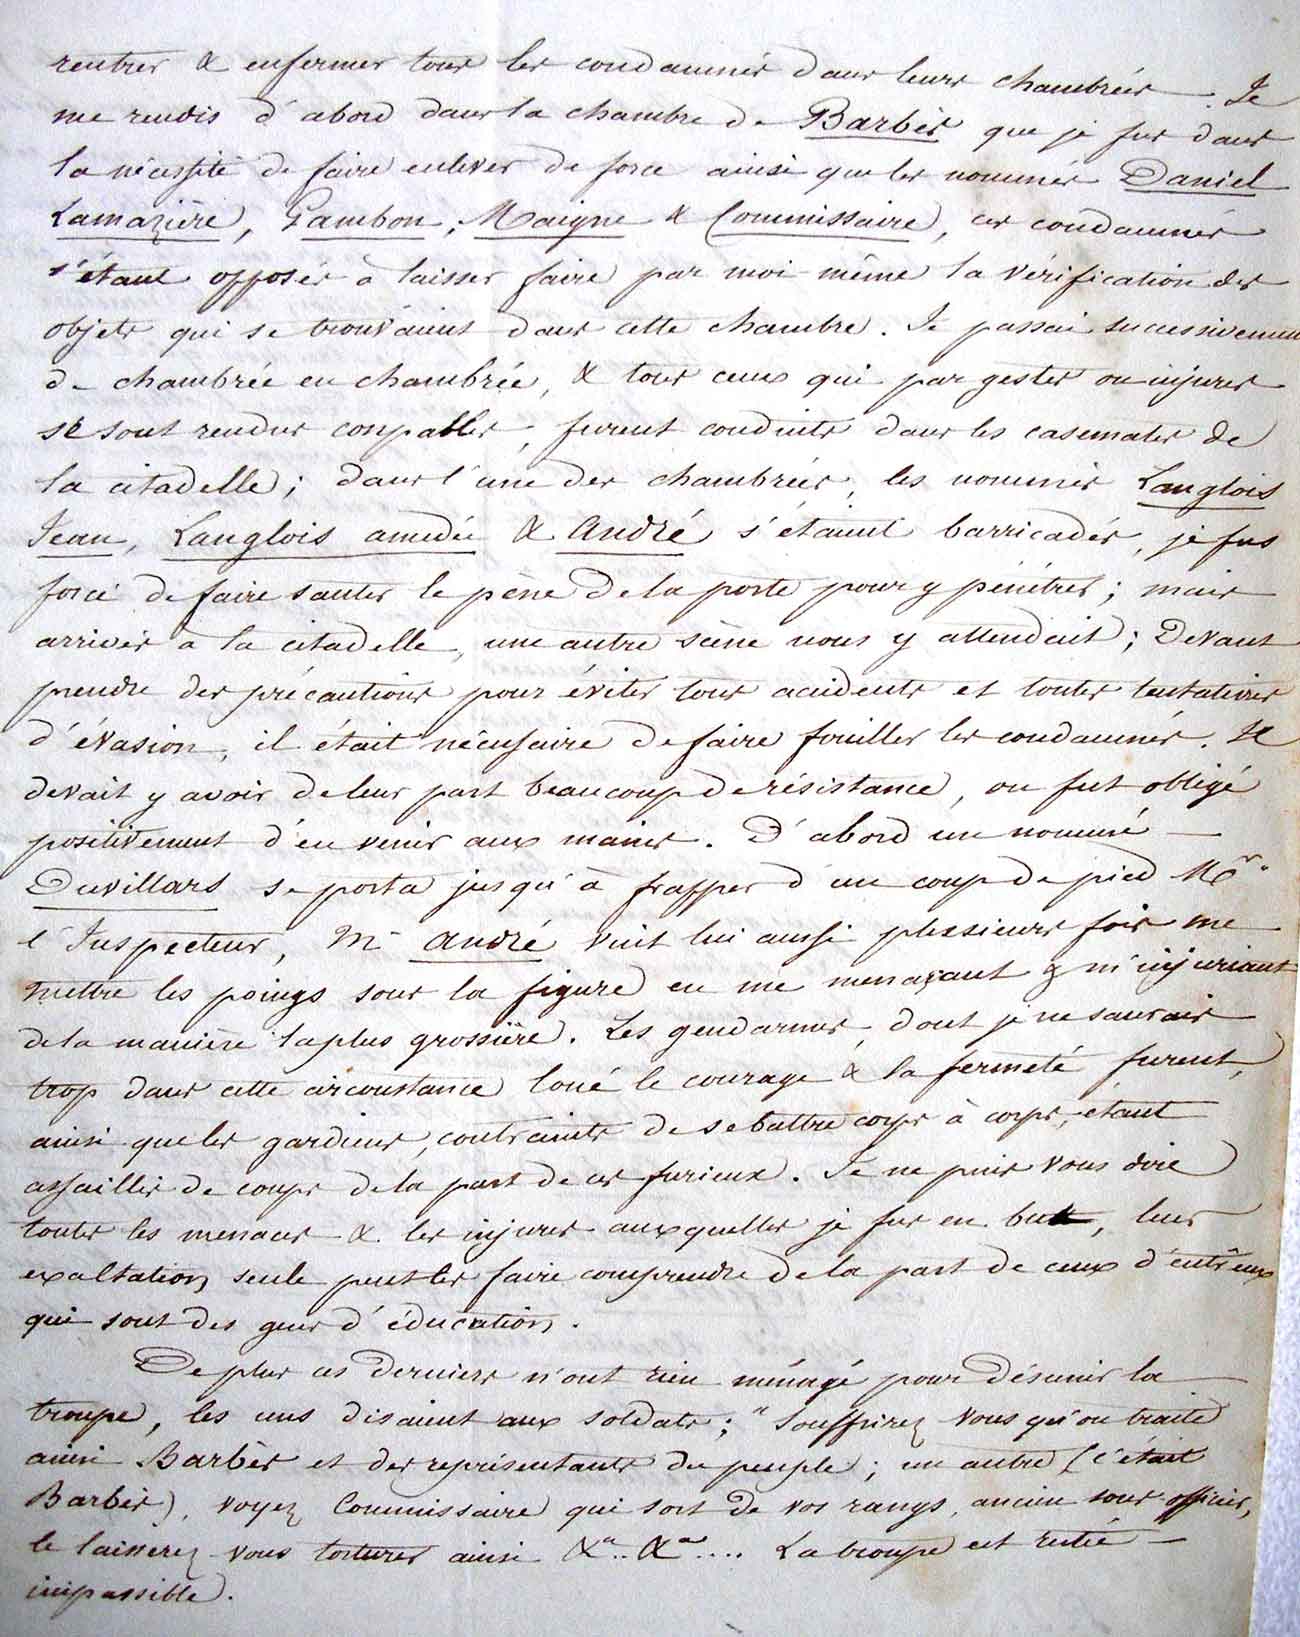 rentrer & enfermer tous les condamnés dans leurs chambrées. Je
me rendis d'abord dans la chambre de Barbès que je fus dans
la nécessité de faire enlever de force ainsi que les nommés Daniel
Lamazière, Gambon, Maigne & Commissaire, ces condamnés
s'étant opposés à laisser faire par moi-même la vérification des
objets qui se trouvaient dans cette chambre. Je passai successivement
de chambrée en chambrée, & tous ceux qui par gestes ou injures
se sont rendus coupables, furent conduits dans les casemates de
la citadelle; dans l'une des chambrées, les nommés Langlois
Jean, Langlois amédée & André s'étaient barricadés, je fus
forcé de faire sauter le pène de la porte pour y pénétrer; mais
arrivés à la citadelle, une autre scène nous y attendait; Devant
prendre des précautions pour éviter tous accidents et toutes tentatives
d'évasion, il était nécessaire de faire fouiller les condamnés. Il
devait y avoir de leur part beaucoup de résistance, on fut obligé
positivement d'en venir aux mains. D'abord un nommé —
Duvillars se porta jusqu'à frapper d'un coup de pied Mr
l'Inspecteur, Mr André vint lui aussi plusieurs fois me
mettre les poings sous la figure en me menaçant & m'injuriant
de la manière la plus grossière. Les gendarmes dont je ne saurais
trop dans cette circonstance loué le courage & la fermeté furent,
ainsi que les gardiens, contraints de se battre corps à corps, étant
assaillis de coups de la part de ces furieux. Je ne puis vous dire
toutes les menaces & les injures auxquelles je fus en but, leur
exaltation seule peut les faire comprendre de la part de ceux d'entr'eux
qui sont des gens d'éducation.
De plus ces derniers n'ont rien ménagé pour désunir la
troupe, les uns disaient aux soldats; "Souffrirez vous qu'on traite
ainsi Barbès et des représentants du peuple; un autre (c'était
Barbès), voyez Commissaire qui sort de vos rangs, ancien sous officier,
le laisserez vous torturer ainsi &a.. &a.... La troupe est restée —
impassible.